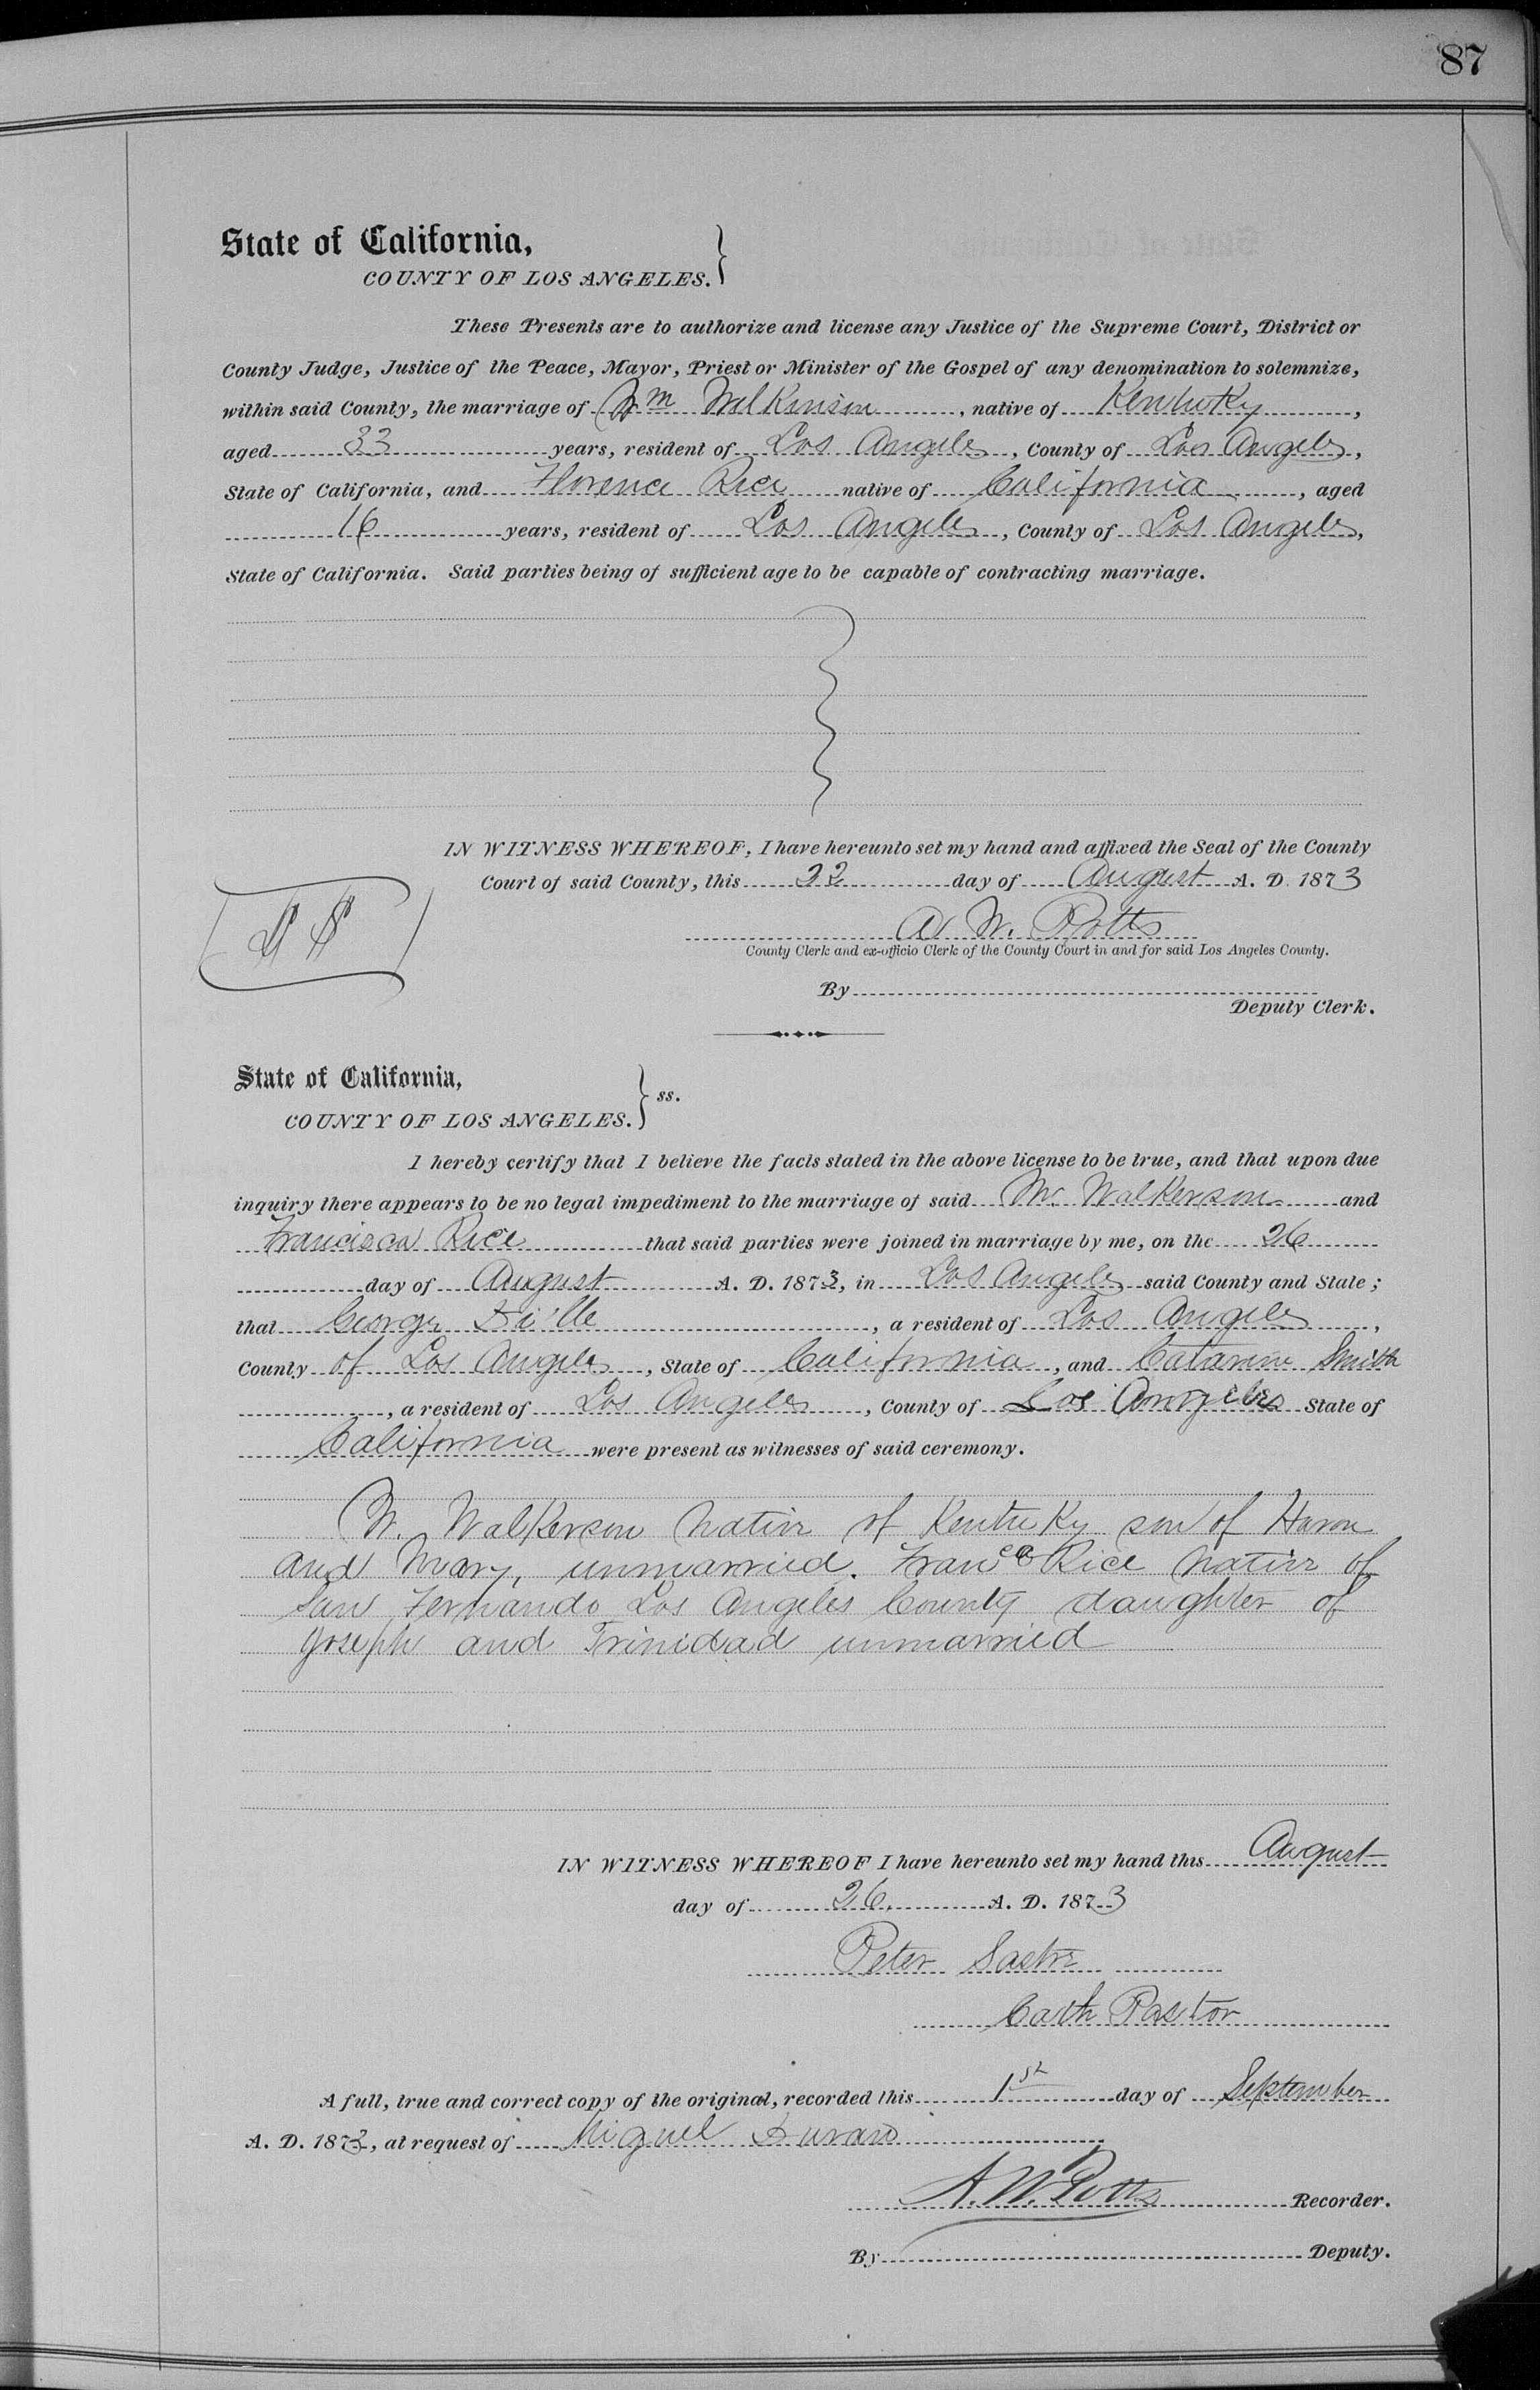 87
State of California,
COUNTY OF LOS ANGELES. }
These Presents are to authorize and license any Justice of the Supreme Court, District or
County Judge, Justice of the Peace, Mayor, Priest or Minister of the Gospel of any denomination to solemnize,
within said County, the marriage of Wm Wilkinson, native of Kentucky,
aged 33 years, resident of Los Angeles, County of Los Angeles,
State of California, and Florence Rice native of California, aged
16 years, resident of Los Angeles, County of Los Angeles,
State of California. Said parties being of sufficient age to be capable of contracting marriage.
IN WITNESS WHEREOF, I have hereunto set my hand and affixed the Seal of the County
Court of said County, this 22 day of August A. D. 1873
LS
A. W. Potts
County Clerk and ex-officio Clerk of the County Court in and for said Los Angeles County.
By
Deputy Clerk.
State of California,
COUNTY OF LOS ANGELES. } ss.
I hereby certify that I believe the facts stated in the above license to be true, and that upon due
inquiry there appears to be no legal impediment to the marriage of said Walkerson and
Francisca Rice that said parties were joined in marriage by me, on the 26
day of August A. D. 1873, in Los Angeles said County and State;
that George, a resident of Los Angeles,
County of Los Angeles, State of California, and Catarine Smith
, a resident of Los Angeles, County of Los Angeles State of
California were present as witnesses of said ceremony.
W. Walkerson native of Kentuky son of
and Mary, unmarried. Franca Rice native of
San Fernando Los Angeles County daughter of
Joseph and Trinidad unmarried
IN WITNESS WHEREOF I have hereunto set my hand this August
day of 26. A. D. 1873
Peter Sastre
Cath Pastor
A full, true and correct copy of the original, recorded this 1st day of September
A. D. 1873, at request of Miguel Duran
A. W. Potts Recorder.
By Deputy.